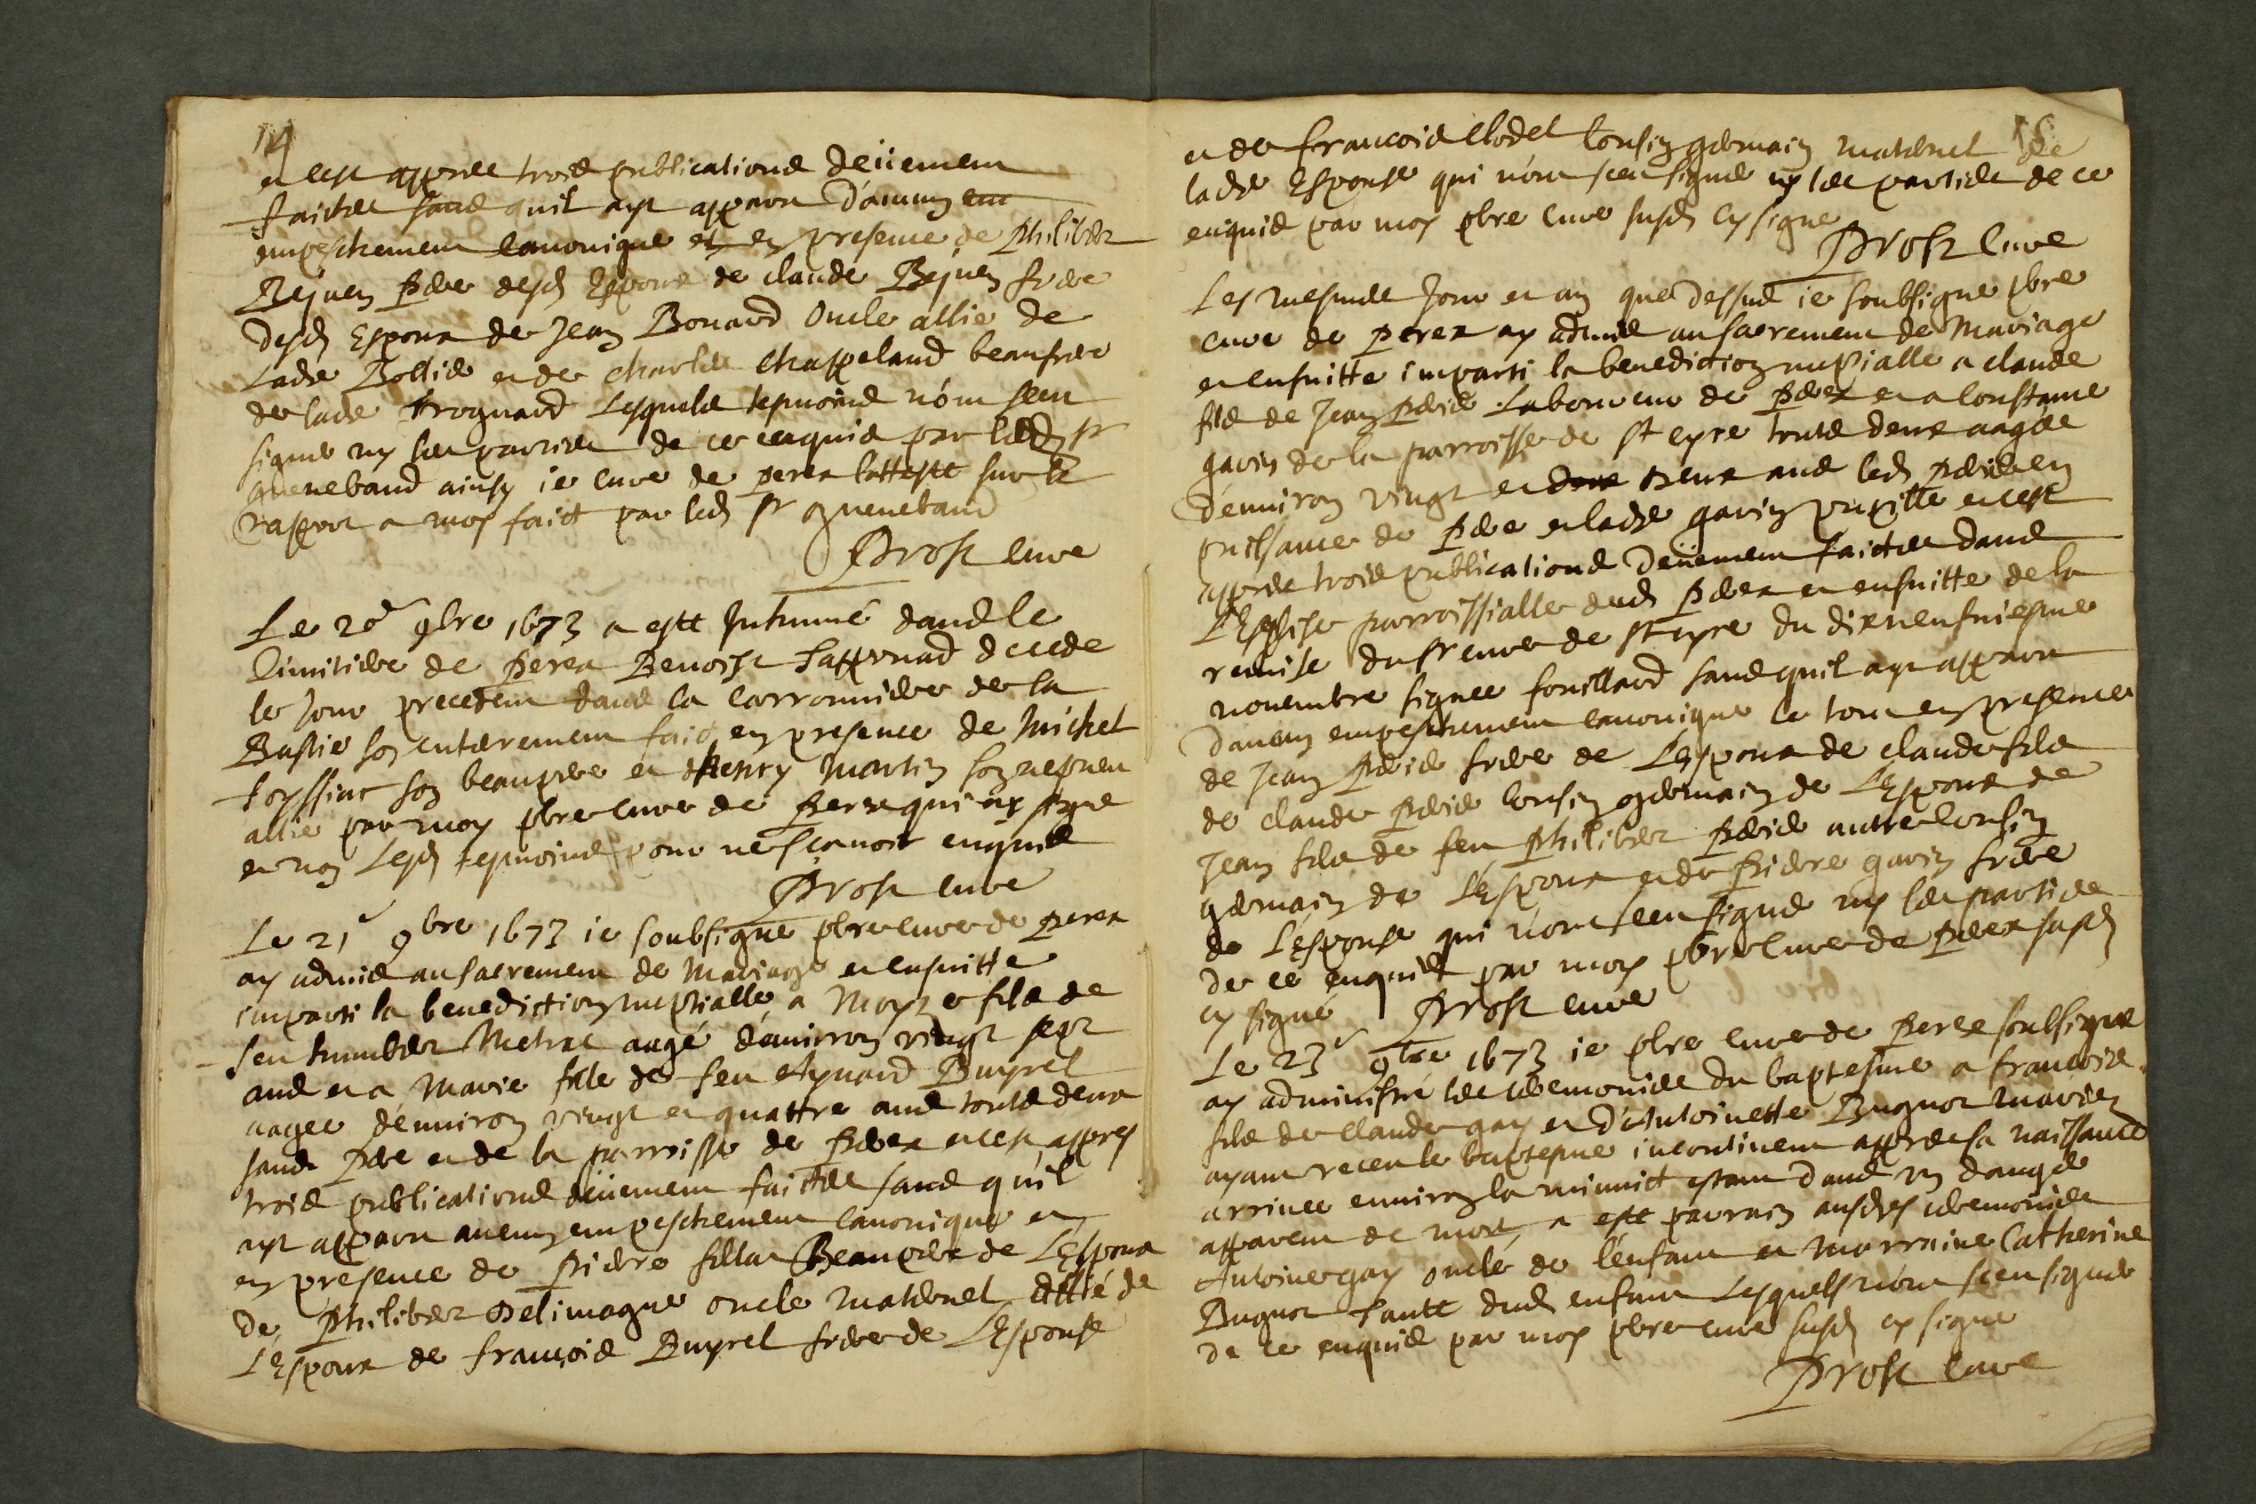 14
et cest appres trois publications deüement
faictes sans quil ayt apparu d'aucun
empeschement canonique et en presence de philiber
Bejuen pere desd Espoux de claude Bejuen frere
desd Espoux de Jean Bonard Oncle allie de
ladte Bollie et de charles chappeland beaufrere
de lade trognard Lesquels tesmoins n'ont sceu
signer ny les parties de ce enquis par led sr
queneband ainsy ie cure de perex l'atteste sur le
rapport a moy faict par led sr queneband
Prost cure
Le 20e 9bre 1673 a este Inhumé dans le
Cimitiere de perex Benoist Sappenad decede
le Jour precedent dans la Corronniere de la
Bastie son enterrement faict en presence de Michel
foyssiat son beaupere et d'henry Martin son nepveu
allie par moy pbre cure de perex qui ay signe
et non Lesd tesmoins pour ne sçavoir enquis
Prost cure
Le 21e 9bre 1673 ie soubsigne pbre cure de perex
ay admis au sacrement de Mariage et ensuitte
imparti la benediction nuptialle a Moyze fils de
feu humber Metral aagé d'environ vingt sept
ans et a Marie fille de feu Aynard Buyrel
aagee d'environ vingt et quattre ans touts deux
sans pere et de la parroisse de perex et cest appres
trois publications deüement faictes sans qu'il
ayt apparu aucun empeschement canonique et
en presence de pierre fillar Beaupere de L'Espoux
de Philiber Delimagne oncle maternel allié de
L'Espoux de françois Buyrel frere de L'Espouse
15
et de francois Clodel Cousin germain maternel de
ladte Espouse qui n'ont sceu signer ny les parties de ce
enquis par moy pbre cure susd Cy signe
Prost Cure
Les mesmes Jour et an que dessus ie soubsigne pbre
cure de perex ay admis au sacrement de Mariage
et ensuitte imparti la benediction nuptialle a claude
fils de Jean peris Laboureur de perex et a Constance
gavin de la parroisse de st cyre touts deux aagés
d'environ vingt et deux ans led peris en
puissance de pere et ladte gavin pupille et cest
appres trois publications deüement faictes dans
L'Esglise parroissialle dud perex et ensuitte de la
remise du sr cure de st cyre du dixneufviesme
novembre signee fouillard sans quil ayt apparu
d'aucun empeschement canonique le tout en presence
de Jean peris frere de L'espoux de claude fils
de claude peris cousin germain de L'Espoux de
Jean fils de feu philiber peris autre Cousin
germain de L'Espoux et de pierre gavin frere
de L'Espouse qui n'ont sceu signer ny les parties
de ce enquis par moy pbre Cure de perex susd
cy signé Prost cure
Le 23e 9bre 1673 ie pbre cure de perex soubsigne
ay administre les ceremonies du baptesme a francois
fils de claude gay et d'Antoinette Bugnot mariez
ayant receu le baptesme incontinent appres sa naissance
arrivee environ la minuict estant dans un danger
apparent de mort, a este parrain ausdtes ceremonies
Antoine gay oncle de l'enfant et marraine Catherine
Bugnot tante dud enfant Lesquels n'ont sceu signer
de ce enquis par moy pbre cure susd cy signe
Prost cure